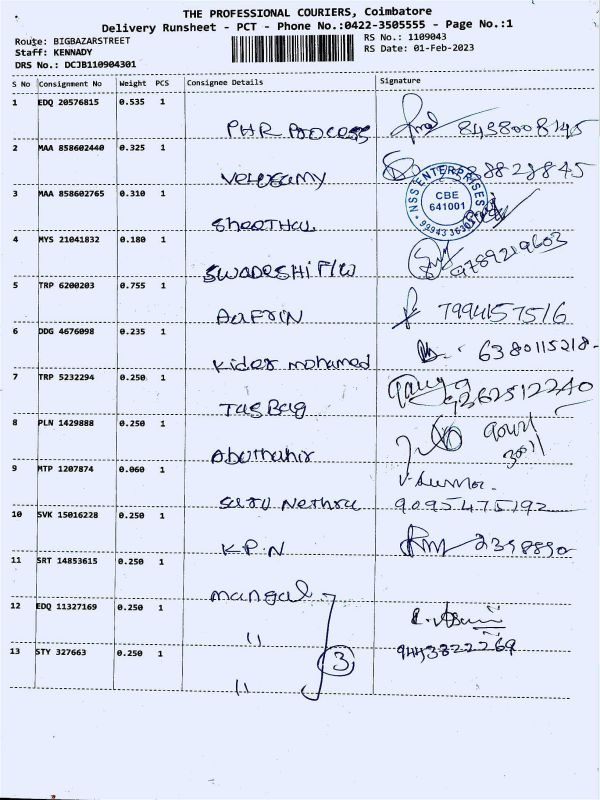 THE PROFESSIONAL COURIERS, Coimbatore
Delivery Runsheet - PCT - Phone No.:0422-3505555 - Page No.:1
Route: BIGBAZARSTREET
Staff: KENNADY
DRS No.: DCJB110904301
RS No.: 1109043
RS Date: 01-Feb-2023
S No Consignment No Weight PCS Consignee Details Signature
1 EDQ 20576815 0.535 1
PHR PROCESS 8438008145
2 MAA 858602440 0.325 1
Velusamy 8828845
3 MAA 858602765 0.310 1
NSS ENTERPRISES
CBE
641001
Sheethal
4 MYS 21041832 0.180 1
SWADESHI F/W 9789219603
5 TRP 6200203 0.755 1
AAFRIN 7994157516
6 DDG 4676098 0.235 1
Kider mohamed 6380115218
7 TRP 5232294 0.250 1
Tas Bag 9262512240
8 PLN 1429888 0.250 1
Abuthahir
9 MTP 1207874 0.060 1
Saru Nethra 9095475192
10 SVK 15016228 0.250 1
K.P.N 2398890
11 SRT 14853615 0.250 1
mangal
12 EDQ 11327169 0.250 1
"
13 STY 327663 0.250 1
3 9443822269
"